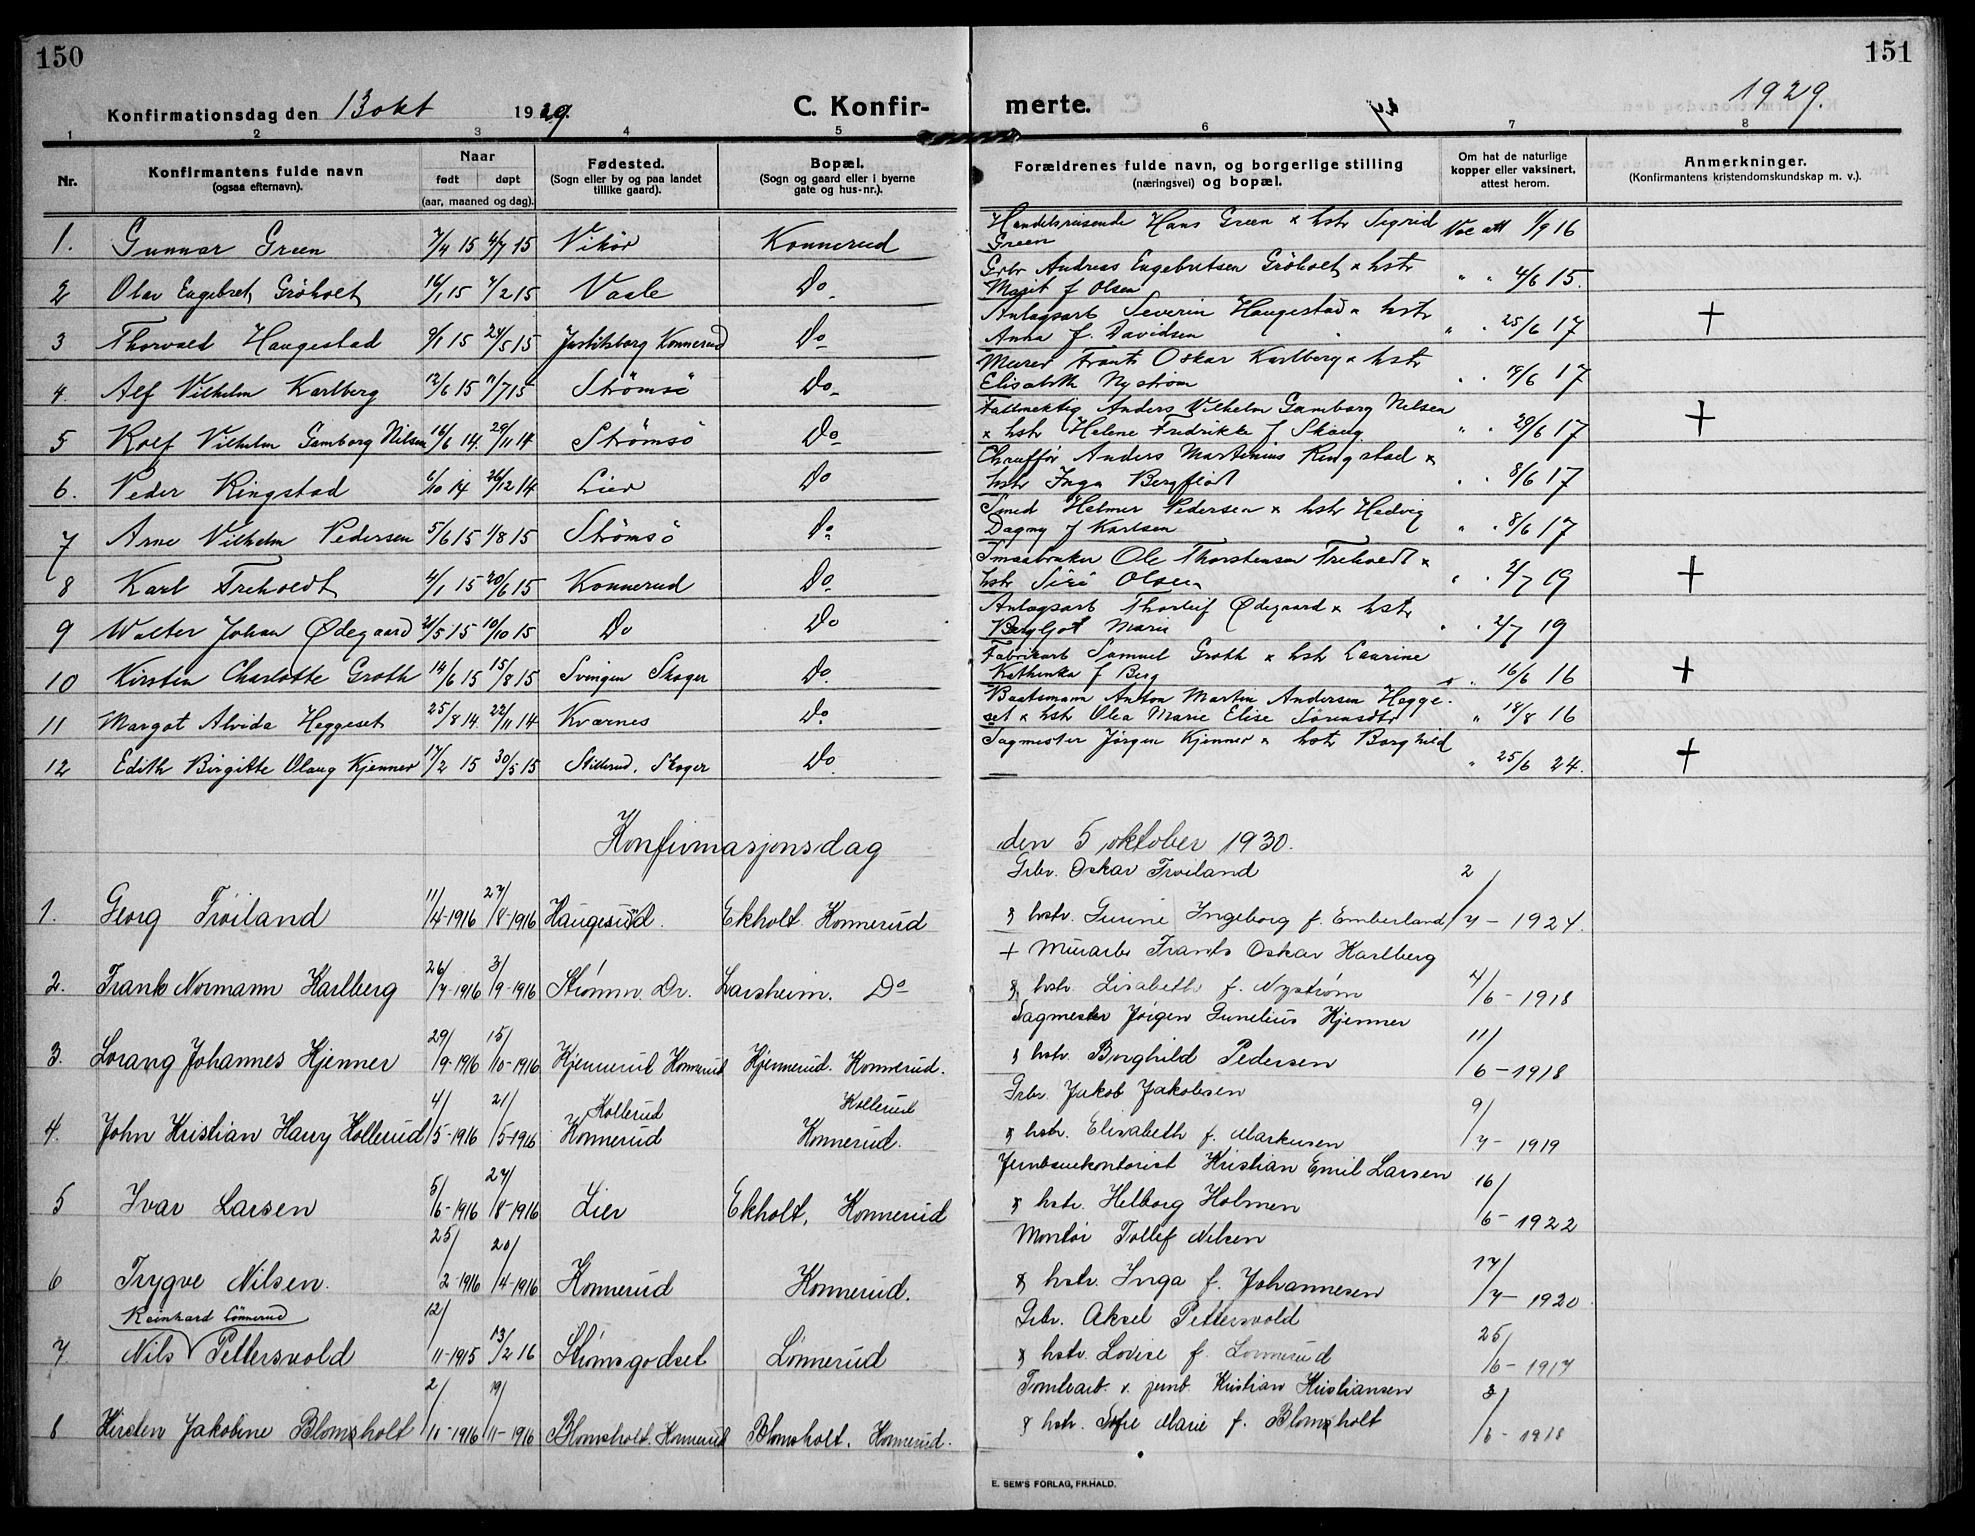 150
151
Konfirmationsdag den 13 okt 1929.
C. Konfir-
merte.
1929.
1 2 3 4 5
6 7 8
Nr.
Konfirmantens fulde navn
(ogsaa efternavn).
Naar
født døpt
(aar, maaned og dag).
Fødested.
(Sogn eller by og paa landet
tillike gaard).
Bopæl.
(Sogn og gaard eller i byerne
gate og hus-nr.).
Forældrenes fulde navn, og borgerlige stilling
(næringsvei) og bopæl.
Om hat de naturlige
kopper eller vaksinert,
attest herom.
Anmerkninger.
(Konfirmantens kristendomskundskap m. v.).
Handelsreisende Hans Green & hstr Sigrid
1. Gunnar Green 7/4 15 4/7 15 Vikør Konnerud Green Vac att 1/9 16
Grbr Andreas Engebretsen Gröholt & hstr
2 Olav Engebret Gröholt 16/1 15 7/2 15 Vaale Do Marit f Olsen " " 4/6 15.
Anlagsarb Severin Haugestad & hstr
3 Thorvald Haugestad 9/1 15 24/5 15 Justitsborg Konnerud Do Anna f. Davidsen " " 25/6 17 +
Murer Frants Oskar Karlberg & hstr
4. Alf Vilhelm Karlberg 12/6 15 11/7 15 Strømsö Do Elisabeth Nystrøm " " 19/6 17
Fullmektig Anders Vilhelm Gamborg Nilsen
5 Rolf Vilhelm Gamborg Nilsen 16/6 14. 29/11 14 Strømsö Do & hstr Helene Fredrikke f Skaug " " 29/6 17 +
Chauffør Anders Martinius Ringstad &
6. Peder Ringstad 6/10 14 26/12 14 Lier Do hstr Inga Bergflødt " " 8/6 17
Smed Helmer Pedersen & hstr Hedvig
7 Arne Vilhelm Pedersen 5/6 15 1/8 15 Strømsö Do Dagny f Karlsen " " 8/6 17
Smaabruker Ole Thorstensen Treholdt &
8 Karl Treholdt 4/1 15 20/6 15 Konnerud Do hstr Siri Olsen " " 2/7 19 +
Anlagsarb Thorleif Ødegaard & hstr
9 Walter Johan Ødegaard 21/5 15 10/10 15 Do Do Bergljot Marie " " 2/7 19
Fabrikarb Samuel Groth & hstr Laurine
10 Kirsten Charlotte Groth 14/6 15 15/8 15 Svingen Skoger Do Kathinka f Berg " " 16/6 16 +
Baatsmann Anton Martin Andersen Hegge-
11 Margot Alvida Heggeset 25/8 14. 22/11 14 Kværnes Do set & hstr Olea Marie Elise Sörensdtr " 18/8 16
Sagmester Jørgen Kjenner & hstr Borghild
12 Edith Birgitte Olaug Kjenner 17/2 15 30/5 15 Stillerud. Skoger Do " 25/6 24. +
Konfirmasjonsdag den 5 oktober 1930.
Grbr. Oskar Trøiland
1. Georg Trøiland 11/4-1916 27/8-1916 Haugesund. Ekholt Konnerud & hstr. Gurine Ingeborg f. Emberland 2/7-1924.
+ Murarb. Frants Oskar Karlberg
2. Frank Normann Karlberg 26/7-1916 3/9-1916 Strømm. Dr. Larsheim. Do & hstr. Lisabeth f. Nystrøm 4/6-1918
Sagmester Jørgen Gunelius Kjenner
3. Lorang Johannes Kjenner 29/9-1916 15/10-1916 Kjennerud Konnerud Kjennerud. Konnerud. & hstr. Borghild Pedersen 11/6-1918
Kollerud Kollerud Grbr. Jakob Jakobsen
4. John Kristian Harry Kollerud 4/5-1916 21/5-1916 Konnerud Konnerud. & hstr. Elisabeth f. Markusen 9/7-1919
Jernbanekontorist Kristian Emil Larsen
5 Ivar Larsen 5/6-1916 27/8-1916 Lier Ekholt, Konnerud & hstr. Helborg Holmen 16/6-1922
Montør Tollef Nilsen
6 Trygve Nilsen. 25/2-1916 20/4-1916 Konnerud Konnerud. & hstr. Inga f. Johannesen 17/7-1920.
Reinhard Lønnerud Grbr. Aksel Pettersvold
7. Nils Pettersvold 12/11-1915 13/2 16 Strømsgodset Lønnerud & hstr. Lovise f. Lønnerud 25/6-1917
Tomtearb. v. jernb. Kristian Kristiansen
8 Kirsten Jakobine Blomsholt 2/10-1916 19/11-1916 Blomsholt. Konnerud Blomsholt. Konnerud. & hstr. Sofie Marie f. Blomsholt 3/6-1918
E. SEM'S FORLAG, FR.HALD.